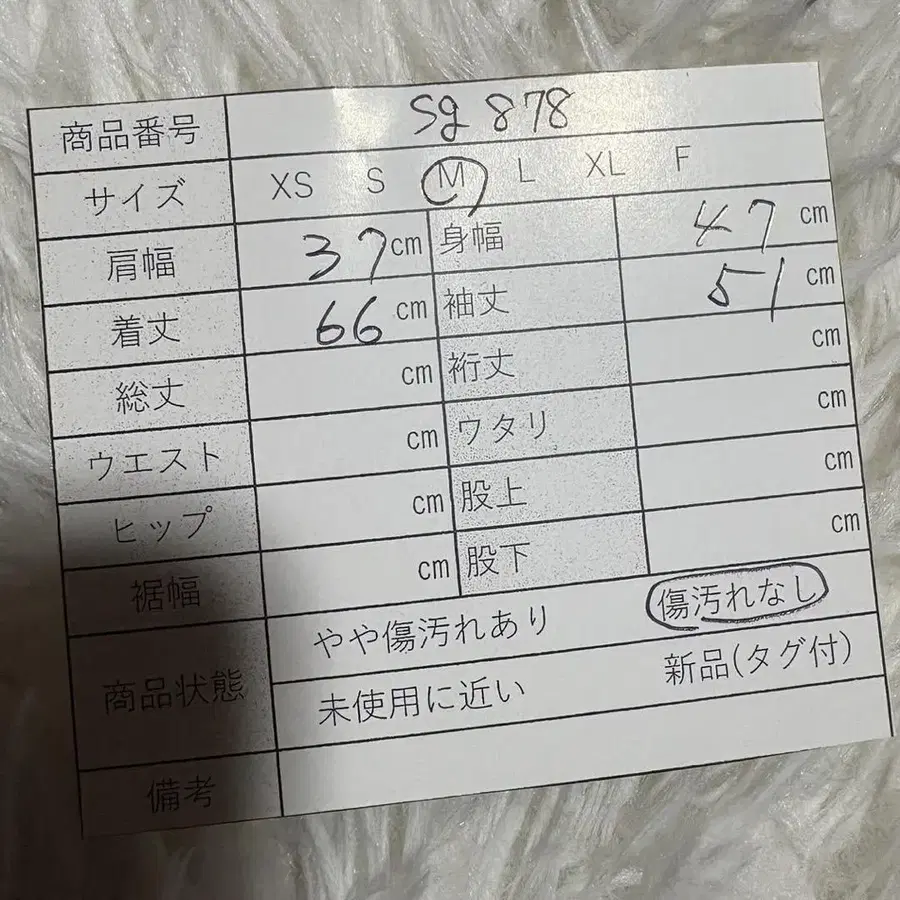 商品番号 sg 878
サイズ XS S M L XL F
肩幅 37 cm 身幅 47 cm
着丈 66 cm 袖丈 51 cm
総丈 cm 裄丈 cm
ウエスト cm ワタリ cm
ヒップ cm 股上 cm
裾幅 cm 股下 cm
商品状態 やや傷汚れあり 傷汚れなし
未使用に近い 新品(タグ付)
備考